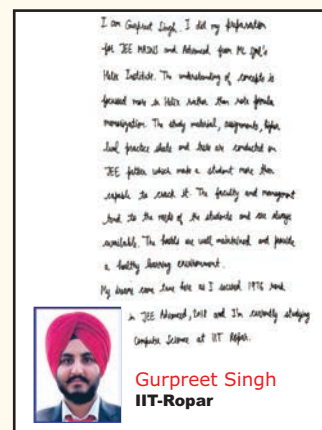 I am Gurpreet Singh. I did my preparation
for JEE MAINS and Advanced from Mr Goel's
Helix Institute. The understanding of concepts is
focused more in Helix rather than rote formula
memorization. The study material, assignments, higher
level practice sheets and tests are conducted on
JEE pattern which make a student more than
capable to crack it. The faculty and management
tend to the needs of the students and are always
available. The hostels are well maintained and provide
a healthy learning environment.
My dreams came true here as I secured 1976 rank
in JEE Advanced, 2018 and I'm currently studying
Computer Science at IIT Ropar.
Gurpreet Singh
IIT-Ropar